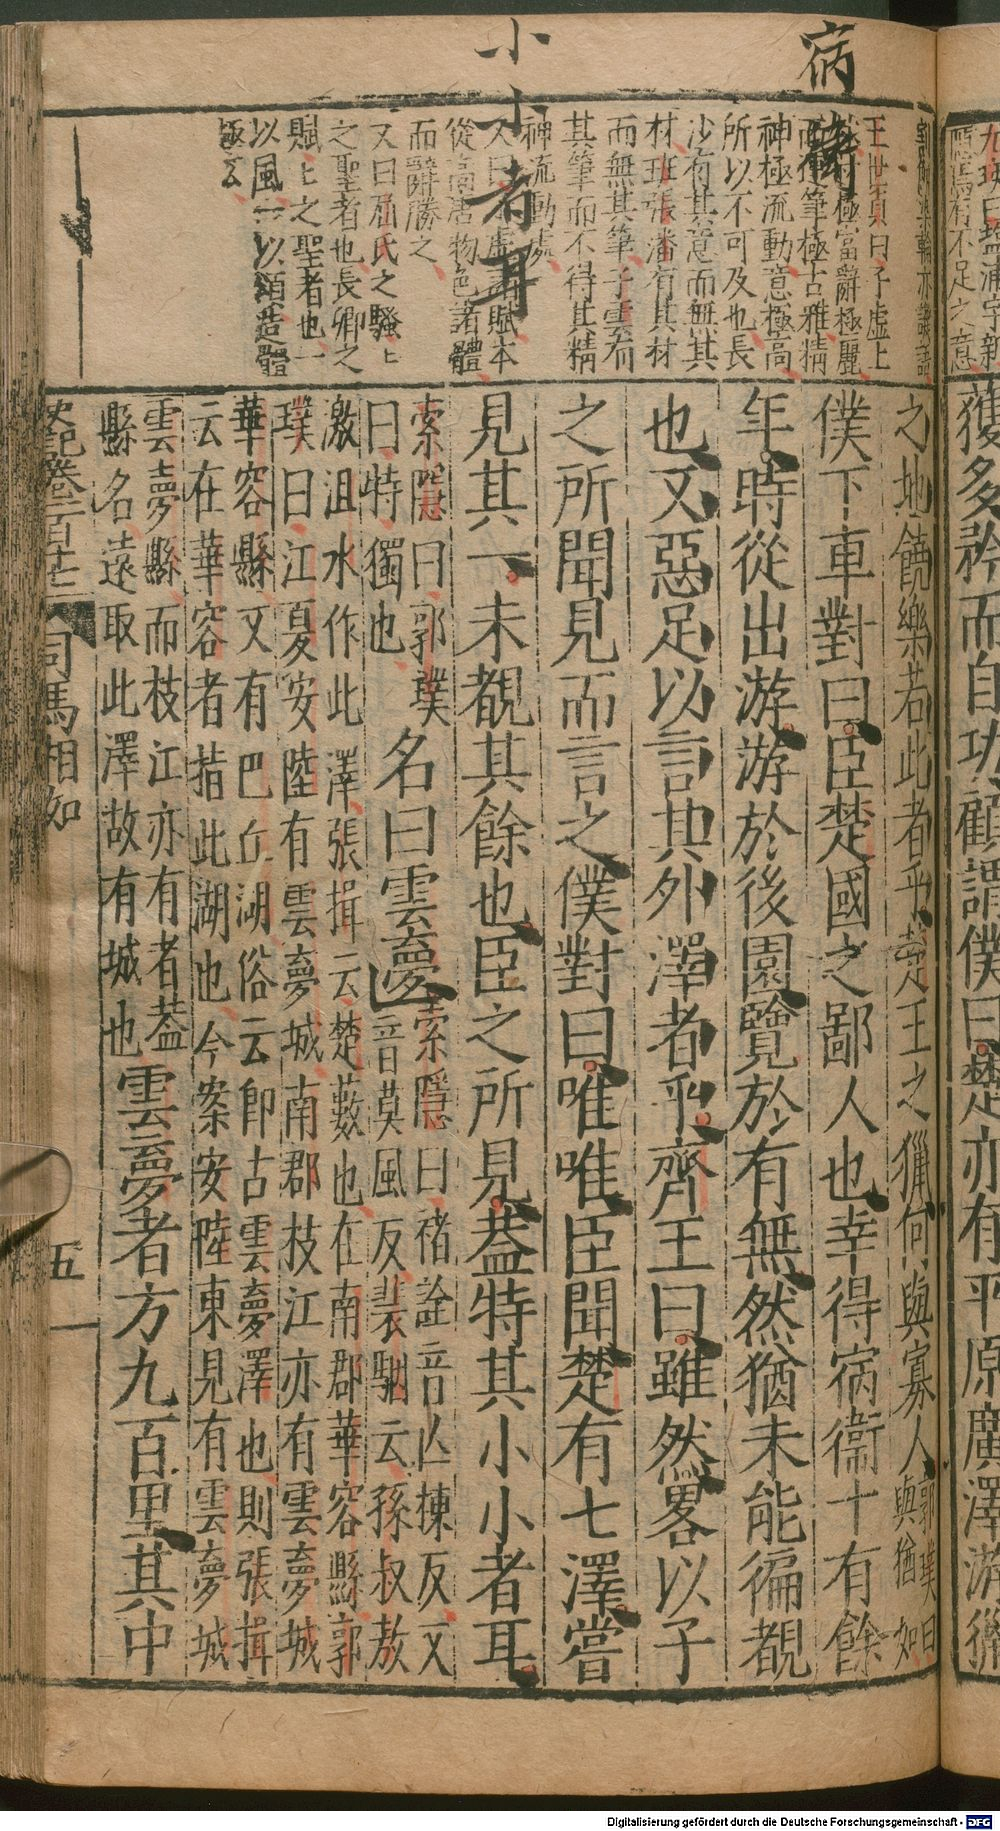 獲多矜而自功顧謂僕曰楚亦有平原廣澤游獵
之地饒樂若此者乎楚王之獵何與寡人郭璞曰與猶如
僕下車對曰臣楚國之鄙人也幸得宿衞十有餘
年時從出游游於後園覽於有無然猶未能徧覩
也又惡足以言其外澤者乎齊王曰雖然畧以子
之所聞見而言之僕對曰唯唯臣聞楚有七澤嘗
見其一未覩其餘也臣之所見葢特其小小者耳
索隱曰郭璞曰特獨也
名曰雲夢
索隱曰褚詮音亾棟反又音莫風反裴駰云孫叔敖
激沮水作此澤張揖云楚藪也在南郡華容縣郭
璞曰江夏安陸有雲夢城南郡枝江亦有雲夢城
華容縣又有巴丘湖俗云卽古雲夢澤也則張揖
云在華容者指此湖也今案安陸東見有雲夢城
雲夢縣而枝江亦有者葢縣名遠取此澤故有城也
雲夢者方九百里其中
病
小小者耳
王世貞曰子虛上
極富辭極麗
筆極古雅精
神極流動意極高
所以不可及也長
沙有其意而無其
材班張潘有其材
而無其筆子雲有
其筆而不得其精
神流動處
又曰子虛賦本
從高唐物色諸體
而辭勝之
又曰屈氏之騷上
之聖者也長卿之
賦上之聖者也一
以風一以頌造體
極玄
史記卷一百十七
司馬相如
五
Digitalisierung gefördert durch die Deutsche Forschungsgemeinschaft - DFG